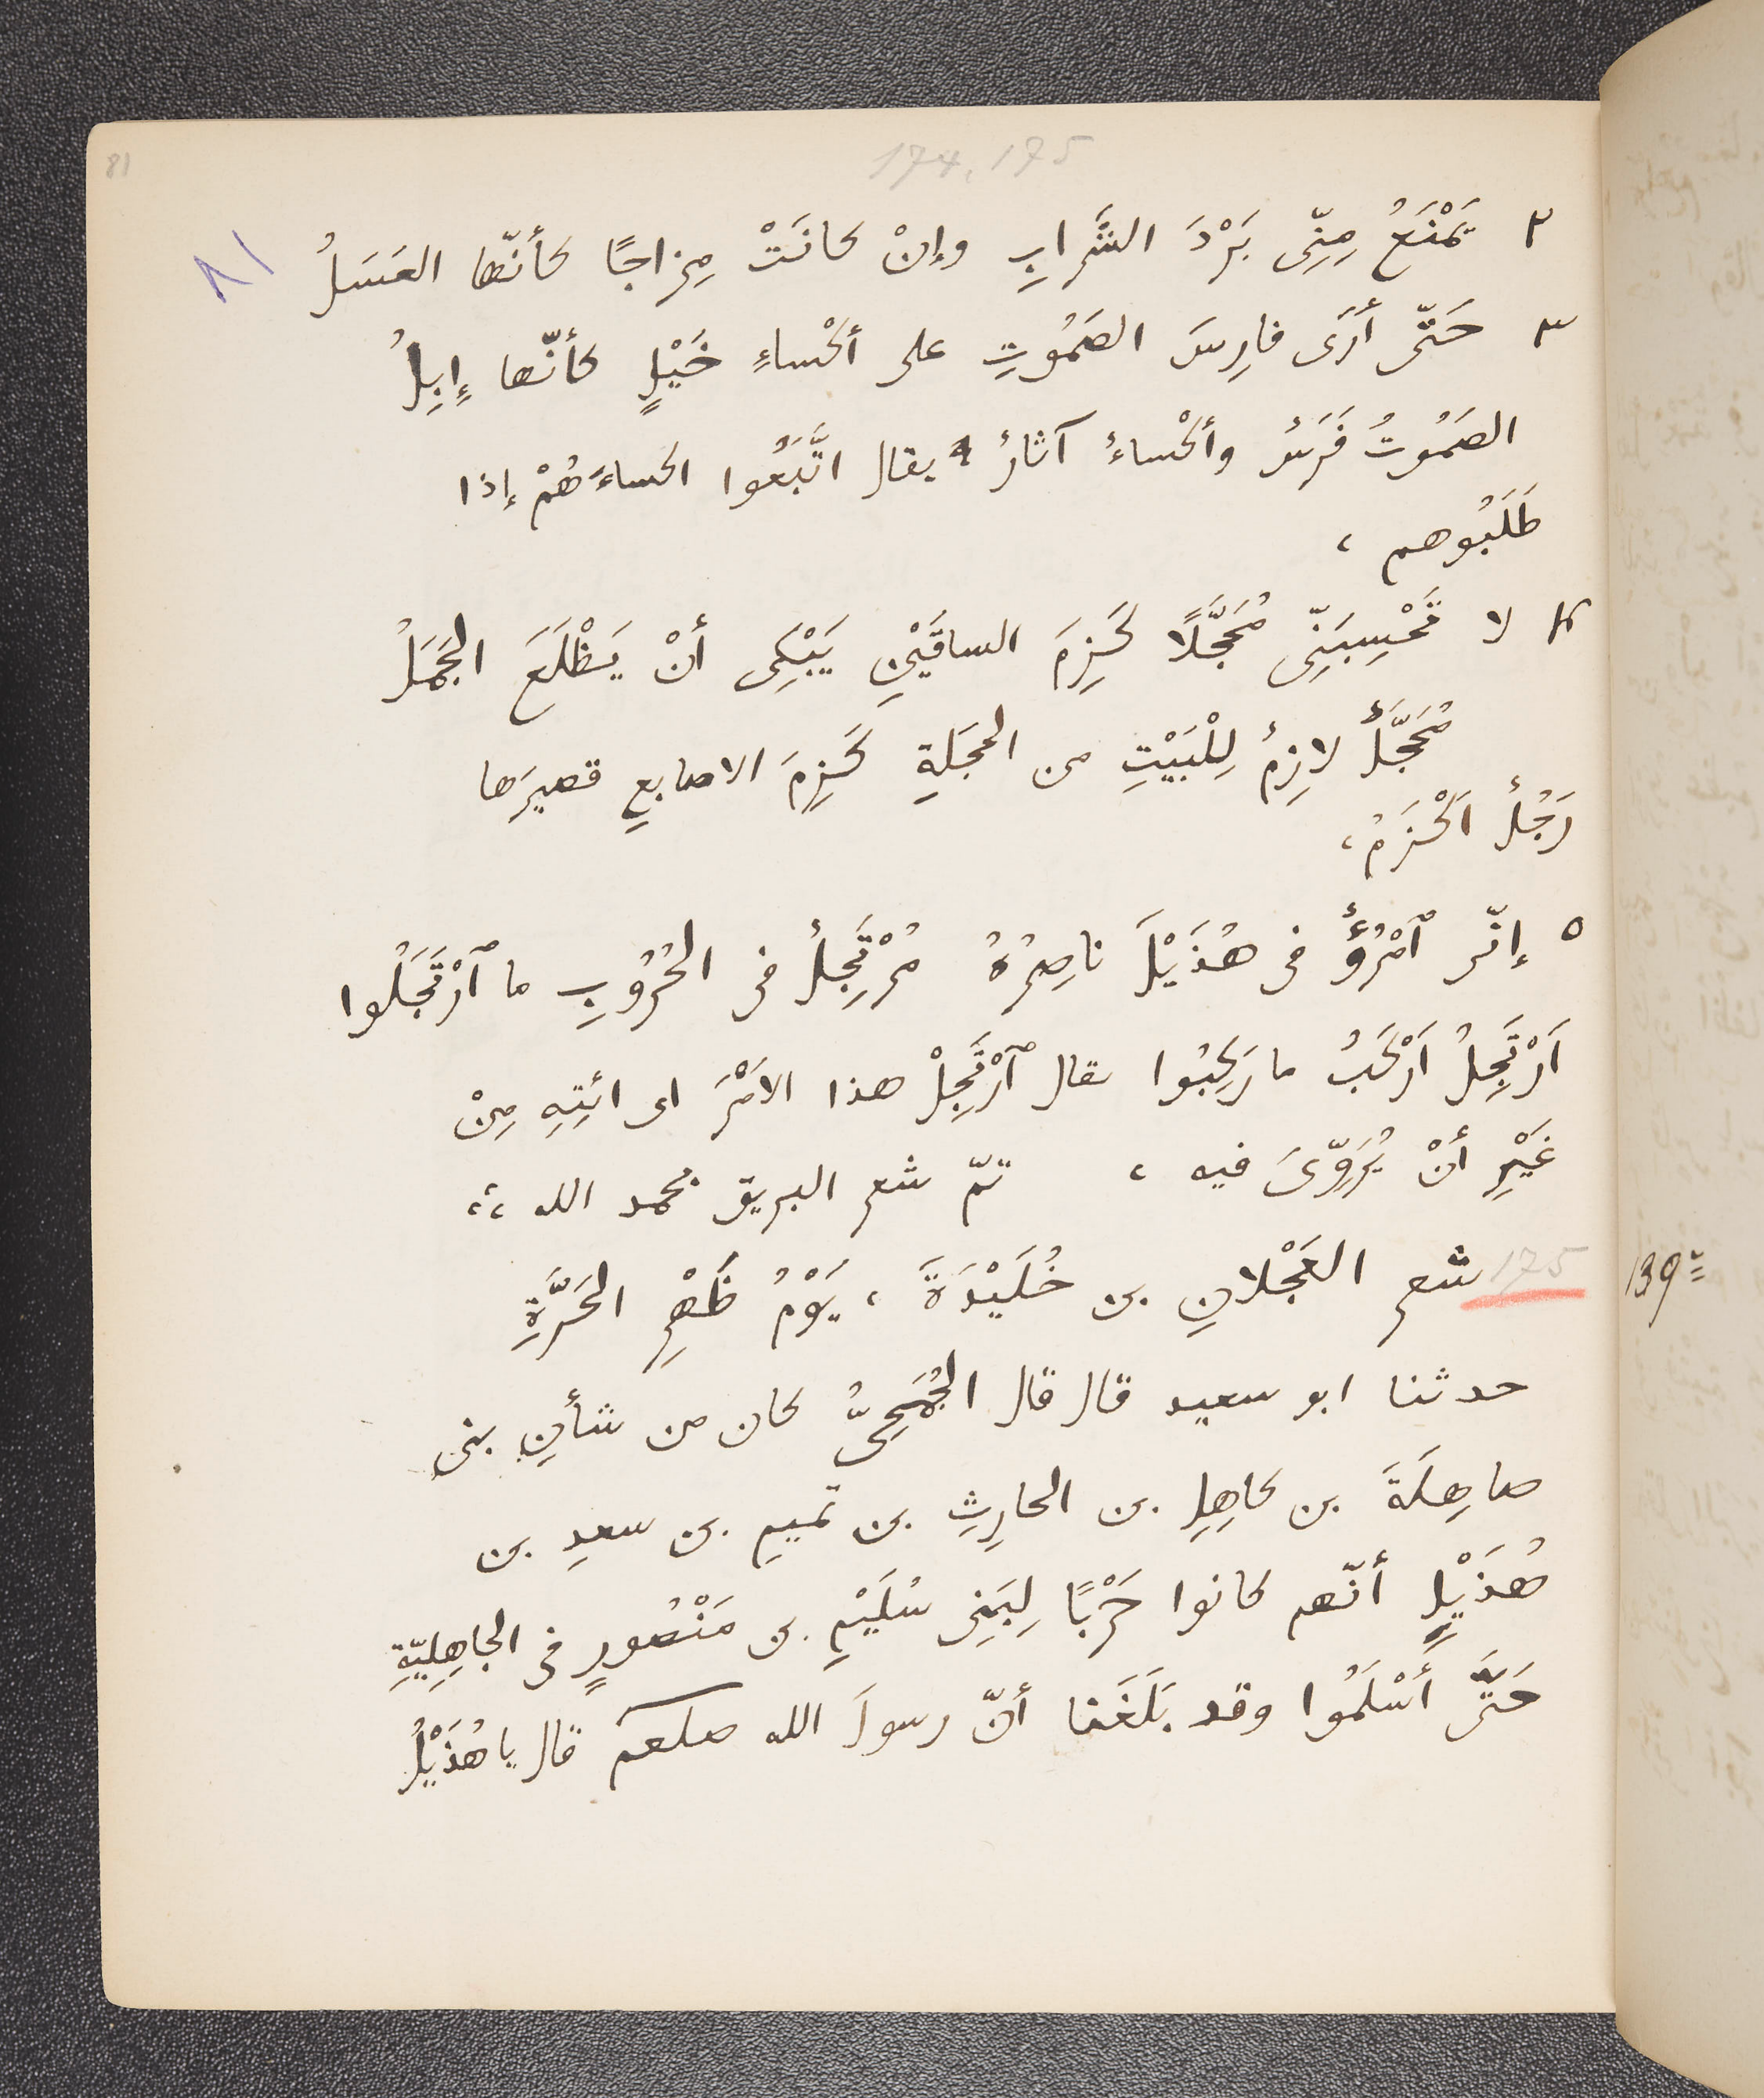 81
174, 175
٢ يَمْنَعُ مِنِّى بَرْدَ الشَّرابِ وإنْ كانَتْ مِزاجًا كأنّها العَسَلُ
٨١
٣ حَتّى أرَى فارِسَ الصَمُوتِ على أكْساءِ خَيْلٍ كأنّها إبِلُ
الصَمُوتُ فَرَسٌ وأكْساءٌ آثارٌ يقال اتَّبَعُوا اكساءَهُمْ إذا
طَلَبُوهم ،
٤ لا تَحْسِبَنِّى مُحَجَّلًا كَزِمَ الساقَيْنِ يَبْكِى أنْ يَظْلَعَ الجَمَلُ
مُحَجَّلٌ لازِمٌ لِلْبَيْتِ من الحجَلةِ كَزِمَ الاصابعِ قصيرَها
رَجُلٌ اَكْزَمُ ،
٥ إنّى ٱمْرُؤٌ فى هُذَيْلَ ناصِرُهُ مُرْتَجِلٌ فى الحُرُوبِ ما ٱرْتَجَلُوا
اَرْتَجِلُ اَرْكَبُ ما رَكِبُوا يقال ٱرْتَجِلْ هذا الاَمْرَ اى ائتِهِ مِنْ
غَيْرِ أنْ يُرَوّىَ فيه ، تمّ شعر البريق بحمد الله ،،
139
175 شعر العَجْلانِ بن خُلَيْدَةَ ، يَوْمُ ظَهْرِ الحَرَّةِ
حدثنا ابو سعيد قال قال الجُمَحِىُّ كان من شأنِ بنى
صاهِلَةَ بن كاهِلِ بن الحارِثِ بن تميمِ بن سعدِ بن
هُذَيْلٍ أنّهم كانوا حَرْبًا لِبَنِى سُلَيْمِ بن مَنْصُورٍ فى الجاهِلِيّةِ
حَتَّى أَسْلَمُوا وقد بَلَغَنا أنّ رسولَ الله صلعم قال يا هُذَيْلُ